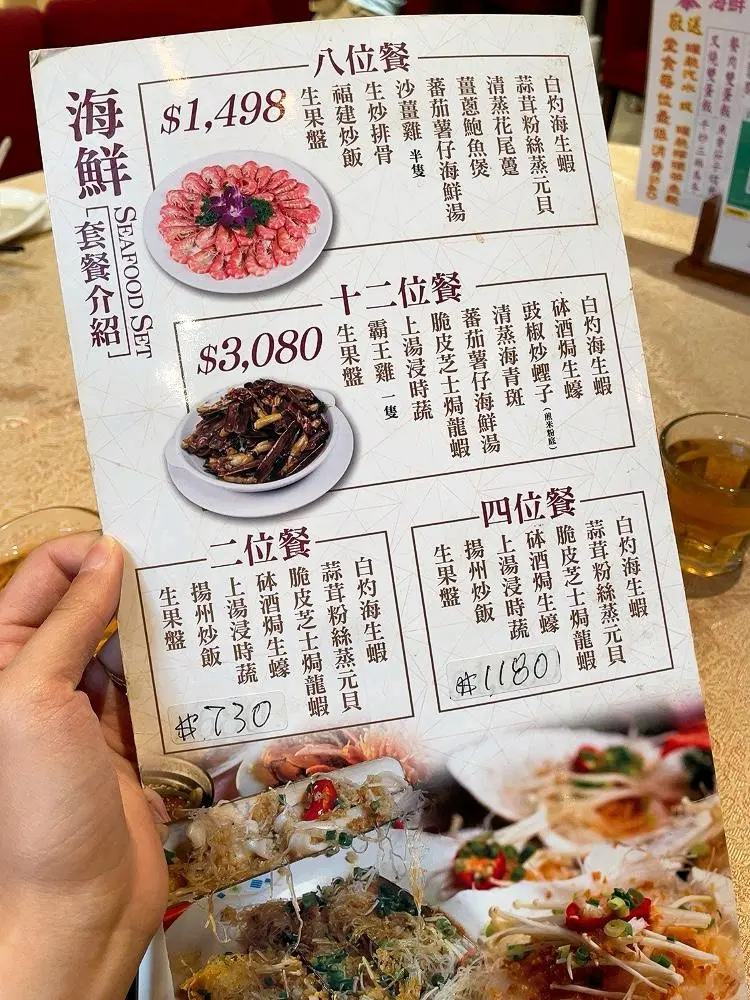 海鮮
SEAFOOD SET
[套餐介紹]
八位餐
$1,498
白灼海生蝦
蒜茸粉絲蒸元貝
清蒸花尾躉
薑蔥鮑魚煲
蕃茄薯仔海鮮湯
沙薑雞 半隻
生炒排骨
福建炒飯
生果盤
十二位餐
$3,080
白灼海生蝦
砵酒焗生蠔
豉椒炒蟶子(煎米粉底)
清蒸海青斑
蕃茄薯仔海鮮湯
脆皮芝士焗龍蝦
上湯浸時蔬
霸王雞 一隻
生果盤
二位餐
白灼海生蝦
蒜茸粉絲蒸元貝
脆皮芝士焗龍蝦
砵酒焗生蠔
上湯浸時蔬
揚州炒飯
生果盤
$730
四位餐
白灼海生蝦
蒜茸粉絲蒸元貝
脆皮芝士焗龍蝦
砵酒焗生蠔
上湯浸時蔬
揚州炒飯
生果盤
$1180
海鮮